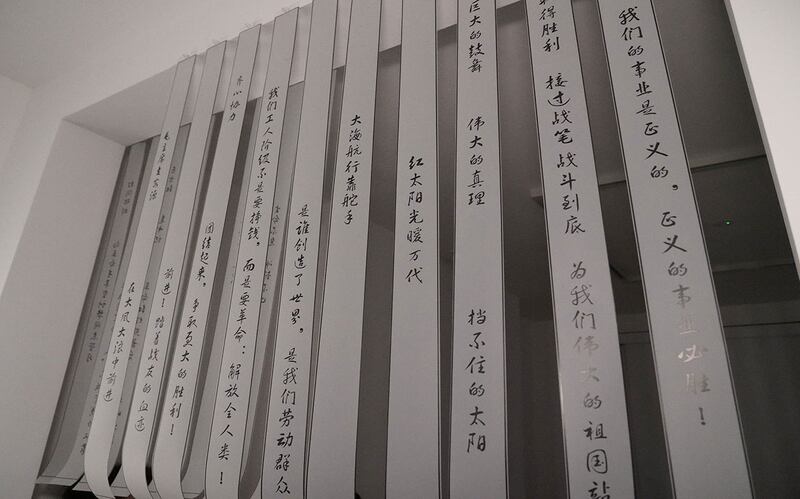 我们的事业是正义的，正义的事业必胜！
得胜利 接过战笔 战斗到底 为我们伟大的祖国站
巨大的鼓舞 伟大的真理 挡不住的太阳
红太阳光暖万代
大海航行靠舵手
是谁创造了世界，是我们劳动群众
我们工人阶级不是要挣钱，而是要革命；解放全人类！
齐心协力 团结起来，争取更大的胜利！
前进！踏着战友的血迹
毛主席 在大风大浪中前进